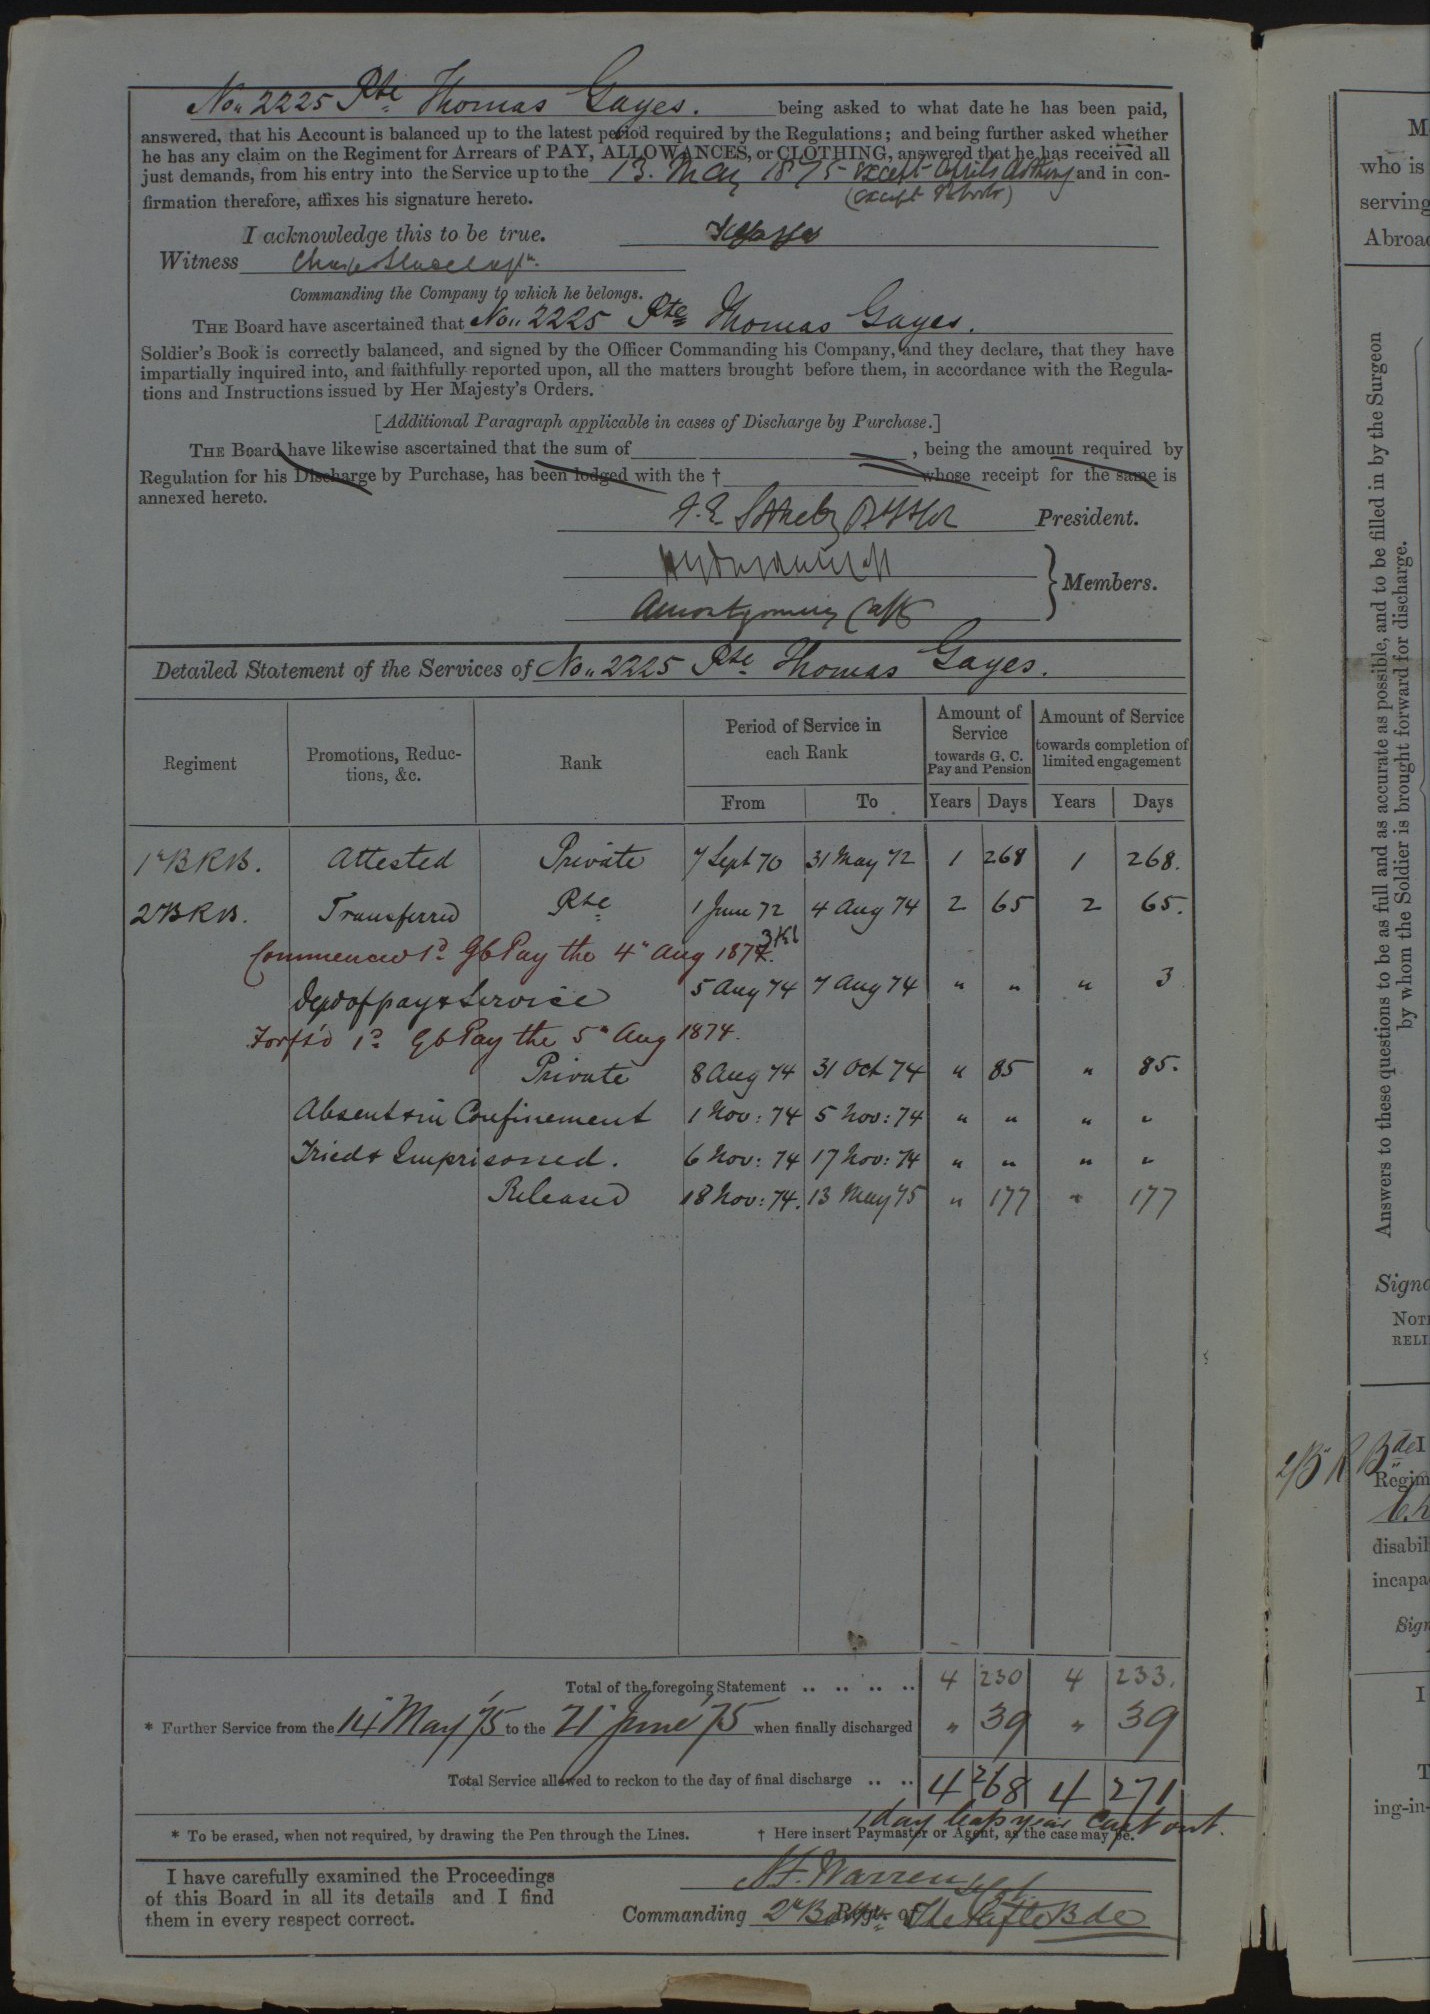 No. 2225 Pte Thomas Gayes. being asked to what date he has been paid,
answered, that his Account is balanced up to the latest period required by the Regulations; and being further asked whether
he has any claim on the Regiment for Arrears of PAY, ALLOWANCES, or CLOTHING, answered that he has received all
just demands, from his entry into the Service up to the 13. May 1875 except Aprils Clothing and in con-
(except
firmation therefore, affixes his signature hereto.
I acknowledge this to be true.
Witness
Commanding the Company to which he belongs.
THE Board have ascertained that No. 2225 Pte Thomas Gayes.
Soldier's Book is correctly balanced, and signed by the Officer Commanding his Company, and they declare, that they have
impartially inquired into, and faithfully reported upon, all the matters brought before them, in accordance with the Regula-
tions and Instructions issued by Her Majesty's Orders.
[Additional Paragraph applicable in cases of Discharge by Purchase.]
THE Board have likewise ascertained that the sum of , being the amount required by
Regulation for his Discharge by Purchase, has been lodged with the † whose receipt for the same is
annexed hereto.
President.
Members.
AMontgomery Capt
Detailed Statement of the Services of No. 2225 Pte Thomas Gayes.
Regiment Promotions, Reduc-tions, &c. Rank Period of Service in each Rank Amount of Service towards G. C. Pay and Pension Amount of Service towards completion of limited engagement
From To Years Days Years Days
1st B R B. Attested Private 7 Sept 70 31 May 72 1 268 1 268.
2nd B R B. Transferred Pte 1 June 72 4 Aug 74 2 65 2 65.
Commenced 1d GC Pay the 4th Aug 1874.
Depd of pay & Service 5 Aug 74 7 Aug 74 " " " 3
Forf'd 1d GC Pay the 5th Aug 1874.
Private 8 Aug 74 31 Oct 74 " 85 " 85.
Absent & in Confinement 1 Nov: 74 5 Nov: 74 " " " "
Tried & Imprisoned. 6 Nov: 74 17 Nov: 74 " " " "
Released 18 Nov: 74. 13 May 75 " 177 " 177
Total of the foregoing Statement .. .. .. .. 4 230 4 233.
* Further Service from the 14th May '75 to the 21st June '75 when finally discharged " 39 " 39
Total Service allowed to reckon to the day of final discharge .. .. 4 268 4 271
1 day leap year cast out.
* To be erased, when not required, by drawing the Pen through the Lines. † Here insert Paymaster or Agent, as the case may be.
I have carefully examined the Proceedings
of this Board in all its details and I find
them in every respect correct.
Warren
Commanding 2nd Batt. Regt. of The Rifle Bde
who is
serving
Abroad
Answers to these questions to be as full and as accurate as possible, and to be filled in by the Surgeon
by whom the Soldier is brought forward for discharge.
NOTE
RELI
2/Bn R Bde I
Regim
disabil
incapa
Sign
I
T
ing-in-